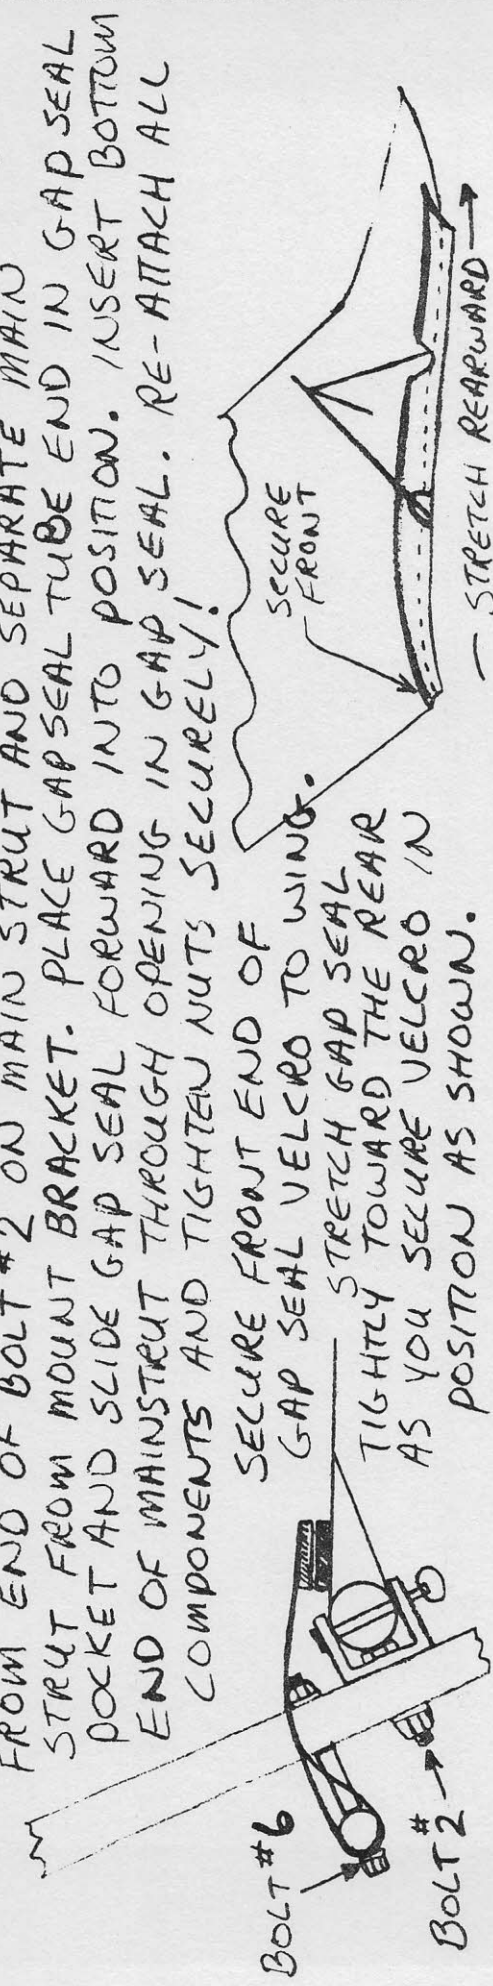 FROM END OF BOLT #2 ON MAIN STRUT AND SEPARATE MAIN
STRUT FROM MOUNT BRACKET. PLACE GAP SEAL TUBE END IN GAP SEAL
POCKET AND SLIDE GAP SEAL FORWARD INTO POSITION. INSERT BOTTOM
END OF MAINSTRUT THROUGH OPENING IN GAP SEAL. RE-ATTACH ALL
COMPONENTS AND TIGHTEN NUTS SECURELY!
SECURE FRONT END OF
GAP SEAL VELCRO TO WING.
STRETCH GAP SEAL
TIGHTLY TOWARD THE REAR
AS YOU SECURE VELCRO IN
POSITION AS SHOWN.
BOLT #6
BOLT #2
SECURE
FRONT
STRETCH REARWARD